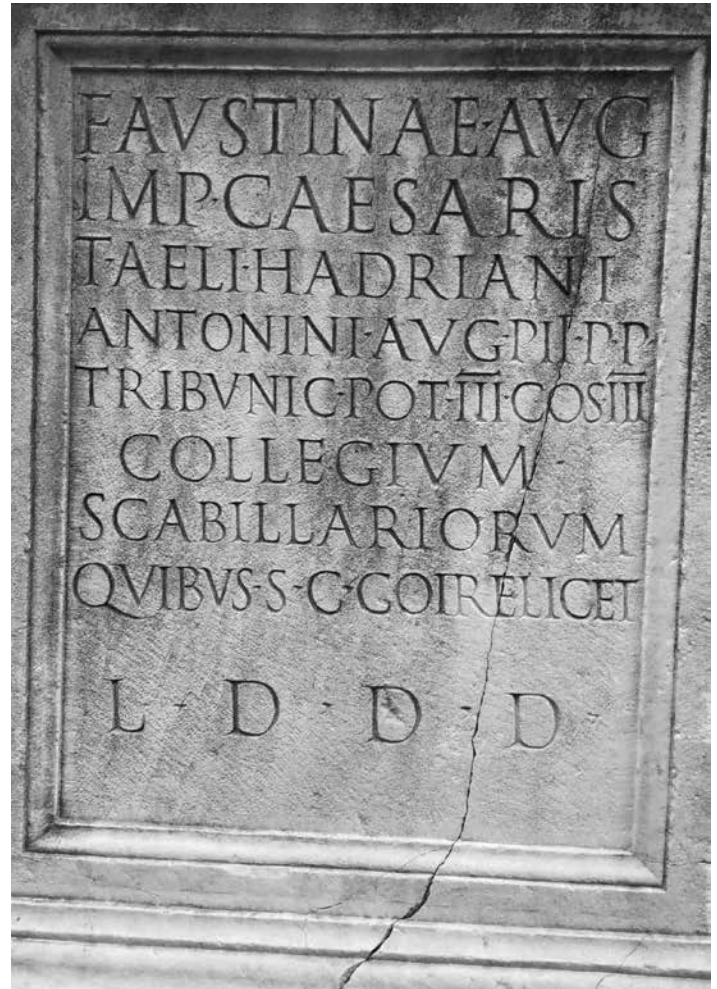 FAVSTINAE·AVG
IMP·CAESARIS
T·AELI·HADRIANI
ANTONINI·AVG·PII·P·P
TRIBVNIC·POT·III·COS·III
COLLEGIVM
SCABILLARIORVM
QVIBVS·S·C·COIRE LICET
L·D·D·D·